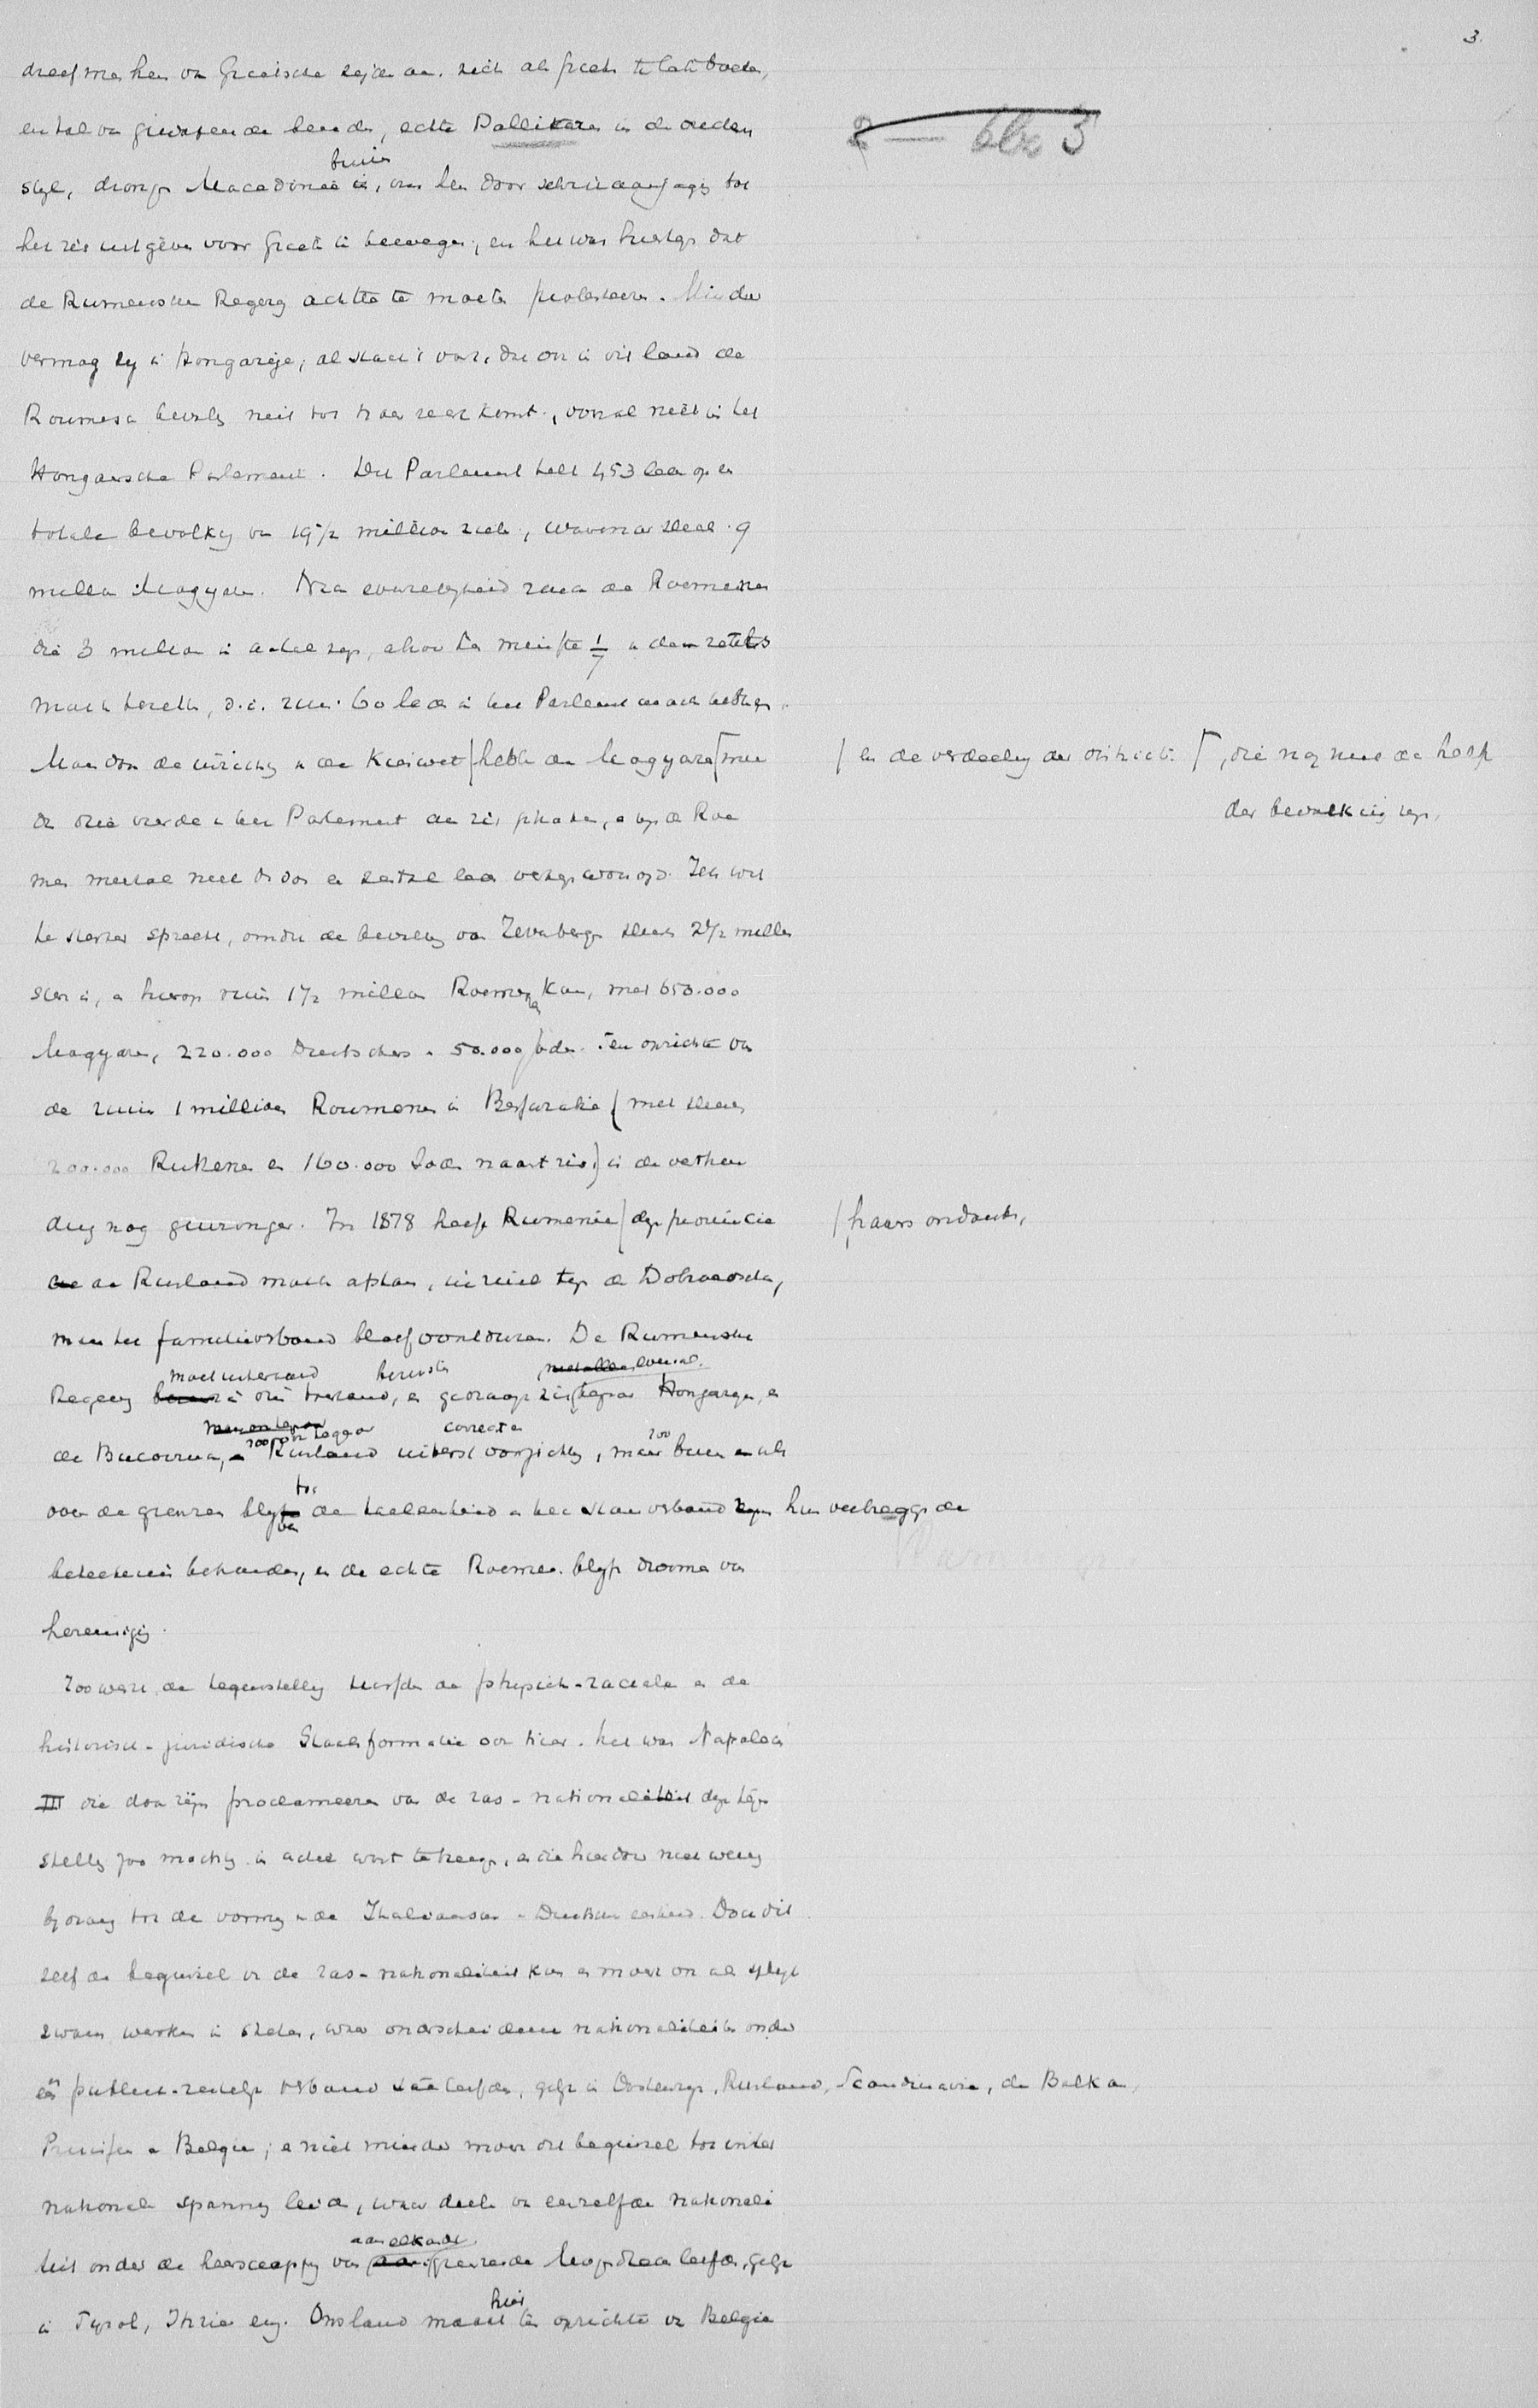 3.
dreef men hen van Grieksche zijde aan, zich als Griek te laten boeken,
en tal van gewapende benden, echte Pallikaren in de ouden
2 — blz 3
stijl, drongen Macedonië binnen, om hen door schrikaanjaging tot
het zich uitgeven voor Griek te bewegen, en het was hiertegen dat
de Rumeensche Regering achtte te moeten protesteeren. Minder
vermag zij in Hongarije, al staat 't vast, dat ook in dit land de
Roumeensche bevolking niet tot haar recht komt, vooral niet in het
Hongaarsche Parlement. Dit Parlement telt 453 leden op een
totale bevolking van 19½ millioen zielen, waarvan slechts 9
millioen Magyaren. Naar evenredigheid zouden de Roemenen
die 3 millioen in aantal zijn, alzoo ten minste 1/7 van dien zetels
moeten bezetten, d.i. ruim 60 leden in het Parlement moeten hebben.
Maar door de inrichting van de Kieswet / hebben de Magyaren ⌈ meer
/ en de verdeeling der districten ⌈, die nog niet de helft
der bevolking zijn,
dan drie vierde van het Parlement aan zich getrokken, en zijn de Roe
menen meestal niet dan door een zestal leden vertegenwoordigd. Iets wat
te sterker spreekt, omdat de bevolking van Zevenbergen slechts 2½ millioen
sterk is, en hierop ruim 1½ millioen Roemenen komen, met 650.000
Magyaren, 220.000 Duitschers en 50.000 Joden. Ten opzichte van
de ruim 1 millioen Roumenen in Bessarabië (met slechts
200.000 Ruthenen en 160.000 Joden naast zich) is de verhou
ding nog gewrongen. In 1878 heeft Rumenië / deze provincie
/ haars ondanks,
aan Rusland moeten afstaan, in ruil tegen de Dobroedscha,
maar het familieverband bleef voortduren. De Rumeensche
moet uiteraard berusten
Regeering in dien toestand, en gedraagt zich tegenover Hongarije, en
zoo voor tegenover correct en zoo
de Bucovina, Rusland uiterst voorzichtig, maar binnen als
tot
over de grenzen blijven de taaleenheid en het stamverband hun veelzeggende
beteekenis behouden, en de echte Roemeen blijft droomen van
hereeniging.
Zoo werkt de tegenstelling tusschen de physiek-raciale en de
historisch-juridische Staatsformatie ook hier. Het was Napoleon
III die door zijn proclameeren van de ras-nationaliteit deze tegen
stelling zoo machtig in actie wist te brengen, en die hierdoor niet weinig
bijdroeg tot de vorming van de Italiaansche en Duitsche eenheid. Doch dit
zelfde beginsel van de ras-nationaliteit kon en moest ook als splijt
zwam werken in Staten, waar onderscheidene nationaliteiten onder
één publiek-rechtelijk verband saamleefden, gelijk in Oostenrijk, Rusland, Scandinavie, de Balkan,
Pruisen en Belgie; en niet minder moest dit beginsel tot inter
nationale spanning leiden, waar deelen van eenzelfde nationali
aan elkander
teit onder de heerschappij van grenzende Mogendheden leefden, gelijk
hier
in Tyrol, Istrie enz. Ons land maakt ten opzichte van Belgie